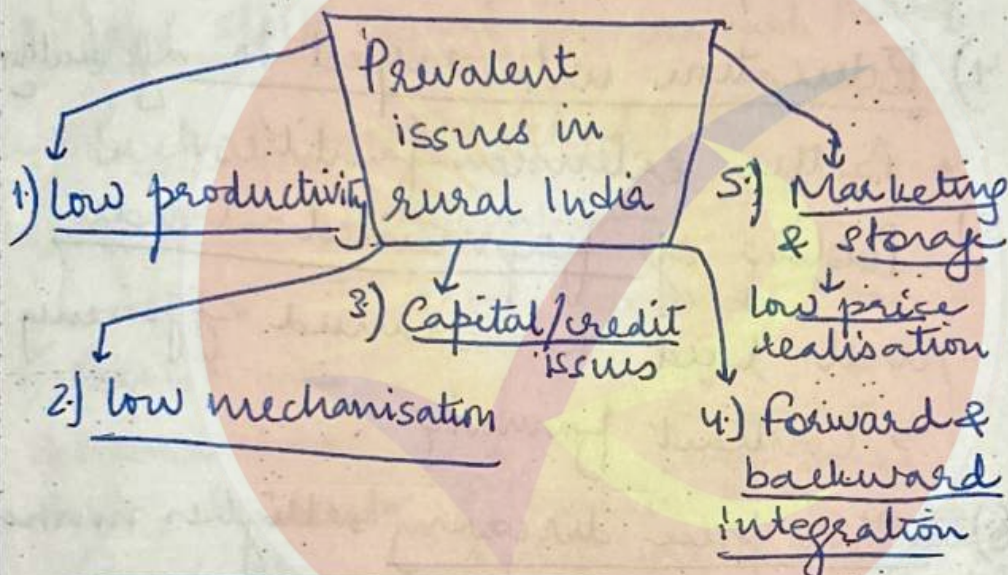 Prevalent
issues in
rural India
1.) Low productivity
2.) low mechanisation
3.) Capital/credit
issues
4.) forward &
backward
integration
5.) Marketing
& storage
low price
realisation